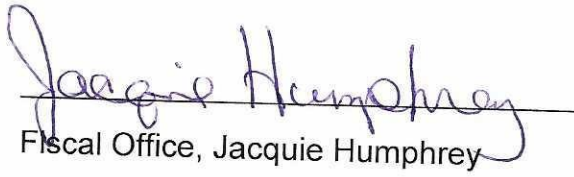 Jacquie Humphrey
Fiscal Office, Jacquie Humphrey